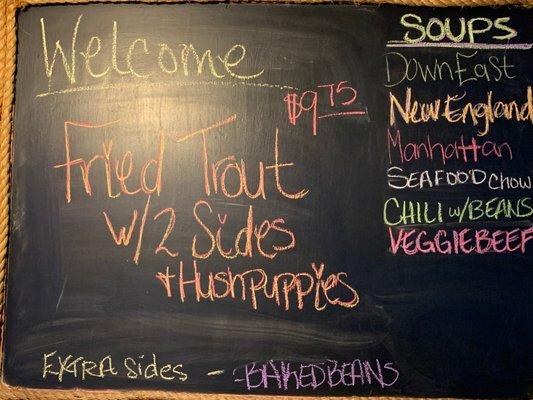 Welcome
$9.75
Fried Trout
w/2 Sides
+ Hushpuppies
EXTRA Sides - - BAKED BEANS
SOUPS
Down East
New England
Manhattan
SEAFOOD CHOW
CHILI w/BEANS
VEGGIE BEEF